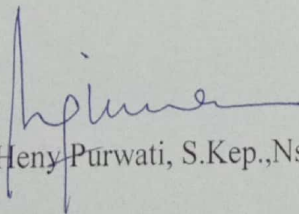 Heny Purwati, S.Kep.,Ns